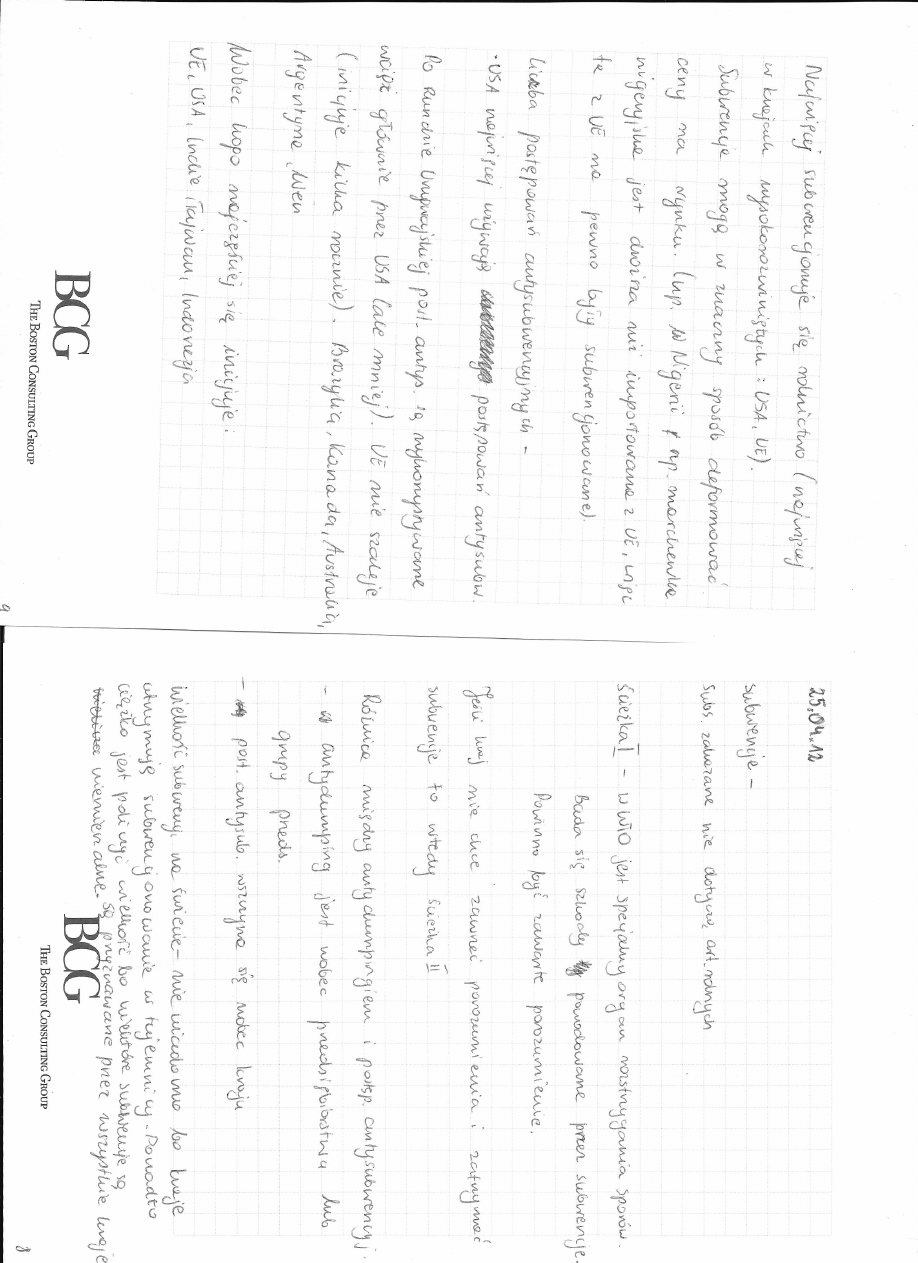 25.04.12
subwencje –
subs. zakazane nie dotyczą art. rolnych
ścieżka I – w WTO jest specjalny organ rozstrzygania sporów.
Bada się szkody powodowane przez subwencje.
Powinno być zawarte porozumienie.
Jeśli kraj nie chce zawrzeć porozumienia i zatrzymać
subwencje to wtedy ścieżka II
Różnice między antydumpingiem i postęp. antysubwencyj.
- antydumping jest wobec przedsiębiorstwa lub
grupy przeds.
- post. antysub. wszczyna się wobec kraju
Wielkość subwencji na świecie – nie wiadomo bo kraje
utrzymują subwencjonowanie w tajemnicy. Ponadto
ciężko jest policzyć wielkość bo niektóre subwencje są
niemierzalne. są przyznawane przez wszystkie kraje
BCG
THE BOSTON CONSULTING GROUP
8
Najwięcej subwencjonuje się rolnictwo (najwięcej
w krajach wysokorozwiniętych: USA, UE).
Subwencje mogą w znaczny sposób deformować
ceny na rynku. (np. w Nigerii np. marchewka
nigeryjska jest droższa niż importowana z UE, więc
te z UE na pewno były subwencjonowane).
liczba postępowań antysubwencyjnych –
• USA najwięcej używają postępowań antysubw.
Po Rundzie Urugwajskiej post. antys. są wykorzystywane
wciąż głównie przez USA (ale mniej). UE nie szaleje
(inicjuje kilka rocznie). Brazylia, Kanada, Australia,
Argentyna, Wen
Wobec kogo najczęściej się inicjuje:
UE, USA, Indie, Tajwan, Indonezja
BCG
THE BOSTON CONSULTING GROUP
9